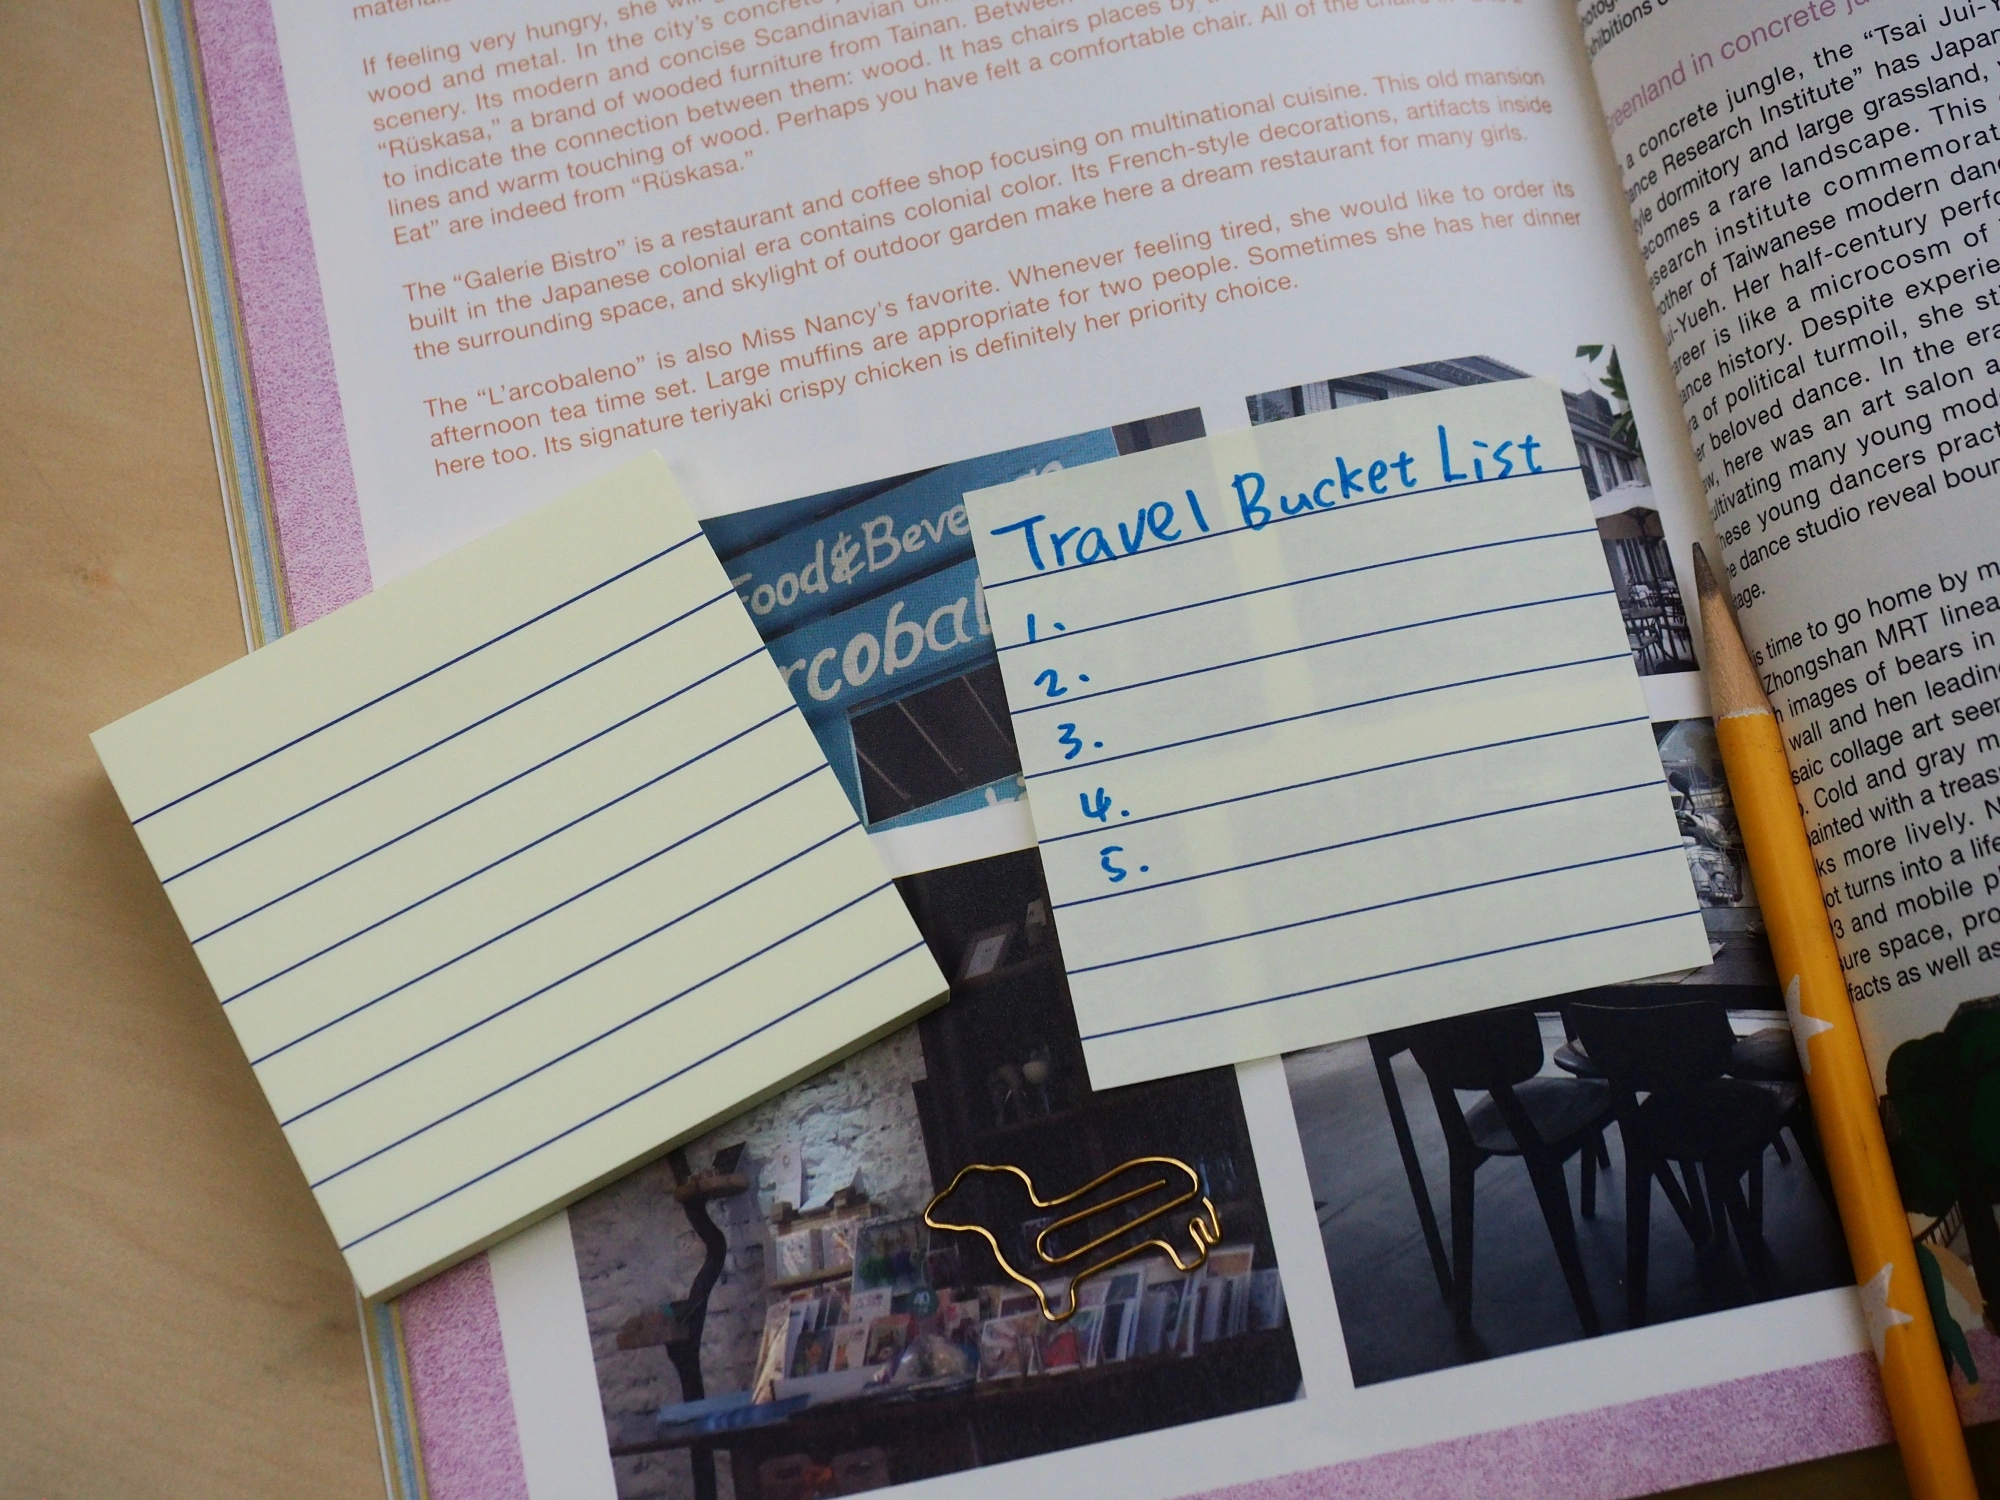 If feeling very hungry, she will
wood and metal. In the city's concrete
scenery. Its modern and concise Scandinavian
“Rüskasa,” a brand of wooded furniture from Tainan. Between
to indicate the connection between them: wood. It has chairs places by
lines and warm touching of wood. Perhaps you have felt a comfortable chair. All of the chairs in
Eat” are indeed from “Rüskasa.”
The “Galerie Bistro” is a restaurant and coffee shop focusing on multinational cuisine. This old mansion
built in the Japanese colonial era contains colonial color. Its French-style decorations, artifacts inside
the surrounding space, and skylight of outdoor garden make here a dream restaurant for many girls.
The “L’arcobaleno” is also Miss Nancy’s favorite. Whenever feeling tired, she would like to order its
afternoon tea time set. Large muffins are appropriate for two people. Sometimes she has her dinner
here too. Its signature teriyaki crispy chicken is definitely her priority choice.
Food & Beve
rcobal
Travel Bucket List
1.
2.
3.
4.
5.
reenland in concrete
a concrete jungle, the “Tsai Jui-Y
ance Research Institute” has Japan
yle dormitory and large grassland,
ecomes a rare landscape. This
esearch institute commemorat
other of Taiwanese modern dan
ui-Yueh. Her half-century perfo
areer is like a microcosm of
ance history. Despite experie
ra of political turmoil, she sti
er beloved dance. In the era
aw, here was an art salon a
ultivating many young mod
hese young dancers pract
e dance studio reveal boun
tage.
is time to go home by m
Zhongshan MRT linea
h images of bears in
wall and hen leading
saic collage art seen
. Cold and gray m
ainted with a treas
ks more lively. N
ot turns into a life
3 and mobile p
sure space, pro
facts as well as